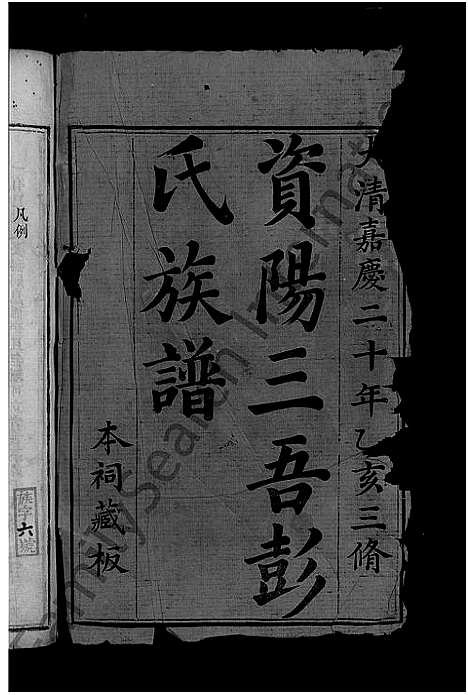 大清嘉慶二十年乙亥三脩
資陽三吾彭
氏族譜
本祠藏板
凡例
族字六號
FamilySearch International